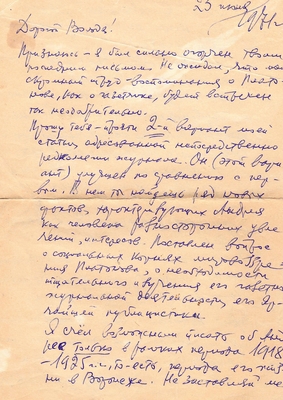 25 июня
1971 г.
Дорогой Володя!
Признаюсь – я был сильно огорчен твоим
последним письмом. Не ожидал, что мой
скромный труд – воспоминания о Плато-
нове, как о газетчике, будет встречен
так неодобрительно.
Прошу тебя – прочти 2-й вариант моей
статьи, адресованной непосредственно
редколлегии журнала. Он (этот вари-
ант) улучшен по сравнению с пер-
вым. В нем ты найдешь ряд новых
фактов, характеризующих Андрея
как человека разносторонних увле-
чений, интересов. Поставлен вопрос
о социальных корнях мировоззре-
ния Платонова, о необходимости
тщательного изучения его газетно-
журнальной деятельности, его
публицистики.
Я счел возможным писать об Анд-
рее только в рамках периода 1918
– 1925 г.г., то-есть, периода его жиз-
ни в Воронеже. Не заставляй ме-